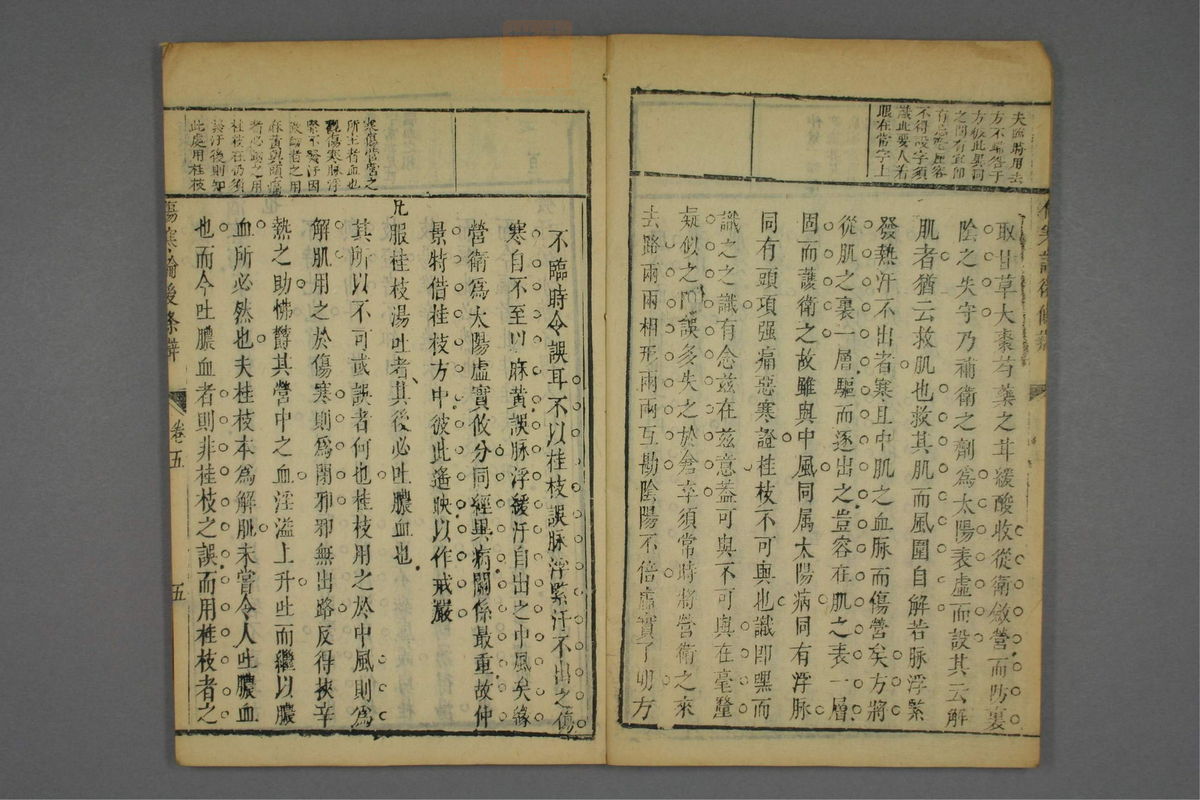 夫臨時用去
方不噬啓于
之間有宜卽
有忌儘且客
不得設字須
識此要人着
眼在常字上
取甘草大棗芍藥之耳緩酸收從衛斂營而防裏
陰之失守乃補衛之劑爲太陽表虛而設其云解
肌者猶云救肌也救其肌而風圍自解若脉浮緊
發熱汗不出者寒且中肌之血脉而傷營矣方將
從肌之裏一層驅而逐出之豈容在肌之表一層
固而護衛之故雖與中風同属太陽病同有浮脉
同有頭項强痛惡寒證桂枝不可與也識卽嘿而
識之之識有念兹在兹意葢可與不可與在毫釐
疑似之間誤多失之於倉卒須常時將營衛之來
去路兩兩相形兩兩互勘陰陽不倍虛實了明方
傷寒論後條辨
不臨時令誤耳不以桂枝誤脉浮緊汗不出之傷
寒自不至以麻黄誤脉浮緩汗自出之中風矣緣
營衛爲太陽虛實攸分同經異病關係最重故仲
景特借桂枝方中彼此遙映以作戒嚴
凡服桂枝湯吐者其後必吐膿血也
其所以不可或誤者何也桂枝用之於中風則爲
解肌用之於傷寒則爲閉邪邪無出路反得挾辛
熱之助怫欝其營中之血淫溢上升吐而繼以膿
血所必然也夫桂枝本爲解肌未嘗令人吐膿血
也而今吐膿血者則非桂枝之誤而用桂枝者之
寒傷營營之
所主者血也
觀傷寒脉浮
緊不發汗因
致衄者之用
麻黄與頭痛
者必衄之用
桂枝在仍須
發汗後則知
此處用桂枝
傷寒論後條辨
卷五
五